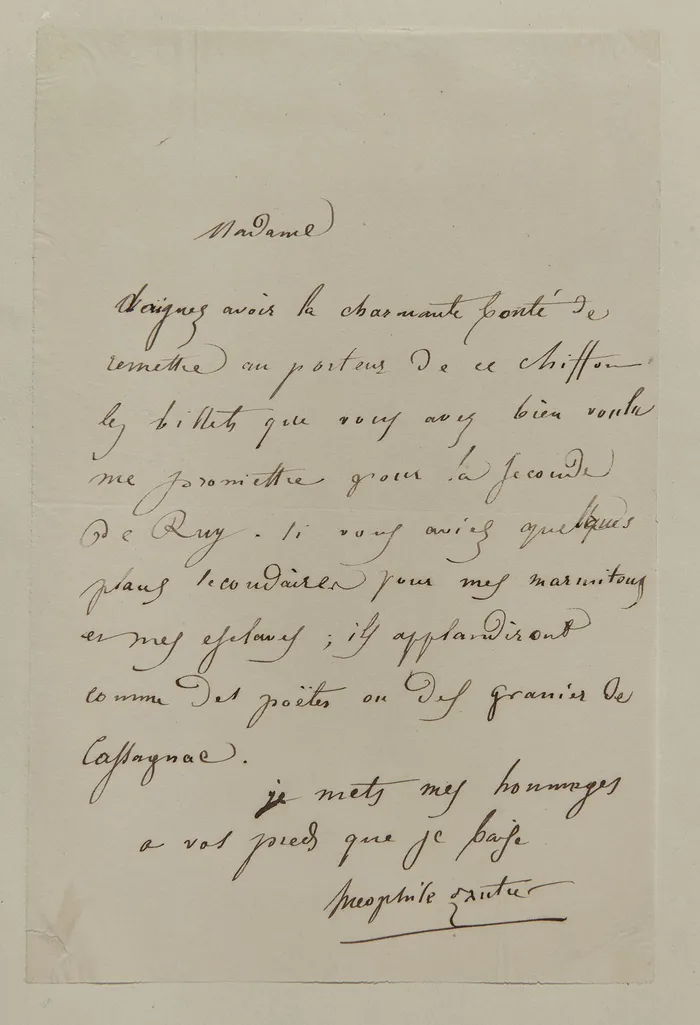 Madame
daignez avoir la charmante bonté de
remettre au porteur de ce chiffon
les billets que vous avez bien voulu
me promettre pour la seconde
de Ruy. Si vous aviez quelques
places secondaires pour mes marmitons
et mes esclaves ; ils applaudiront
comme des poëtes ou des granier de
Cassagnac.
je mets mes hommages
a vos pieds que je baise
theophile gautier